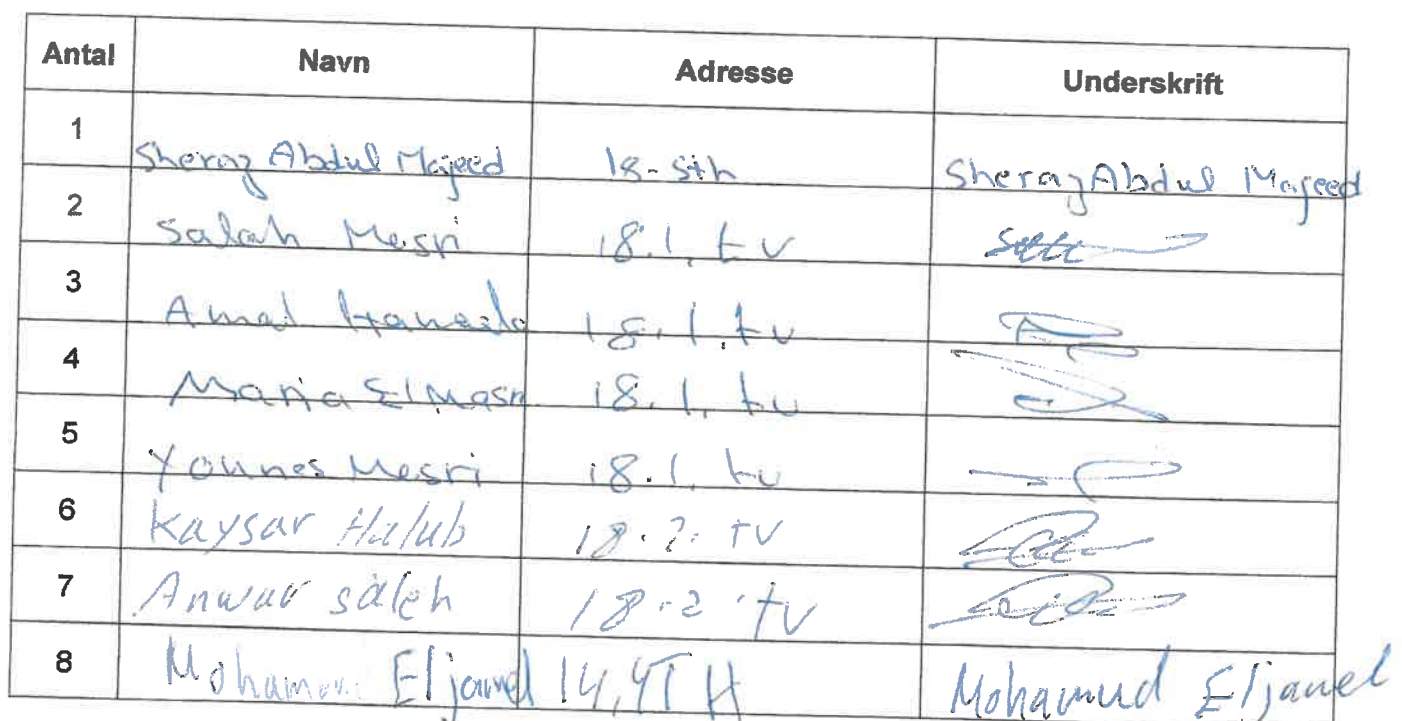 Antal Navn Adresse Underskrift
1 Sheraz Abdul Majeed 18-Sth Sheraz Abdul Majeed
2 Salah Mesri 18.1. tv
3 Amal 18.1.tv
4 Maria El Masri 18.1. tv
5 Younes Mesri 18.1. tv
6 Kaysar Halub 18.2. TV
7 Anwar saleh 18.2.tv
8 Eljamel 14,4T H Mohamud Eljamel